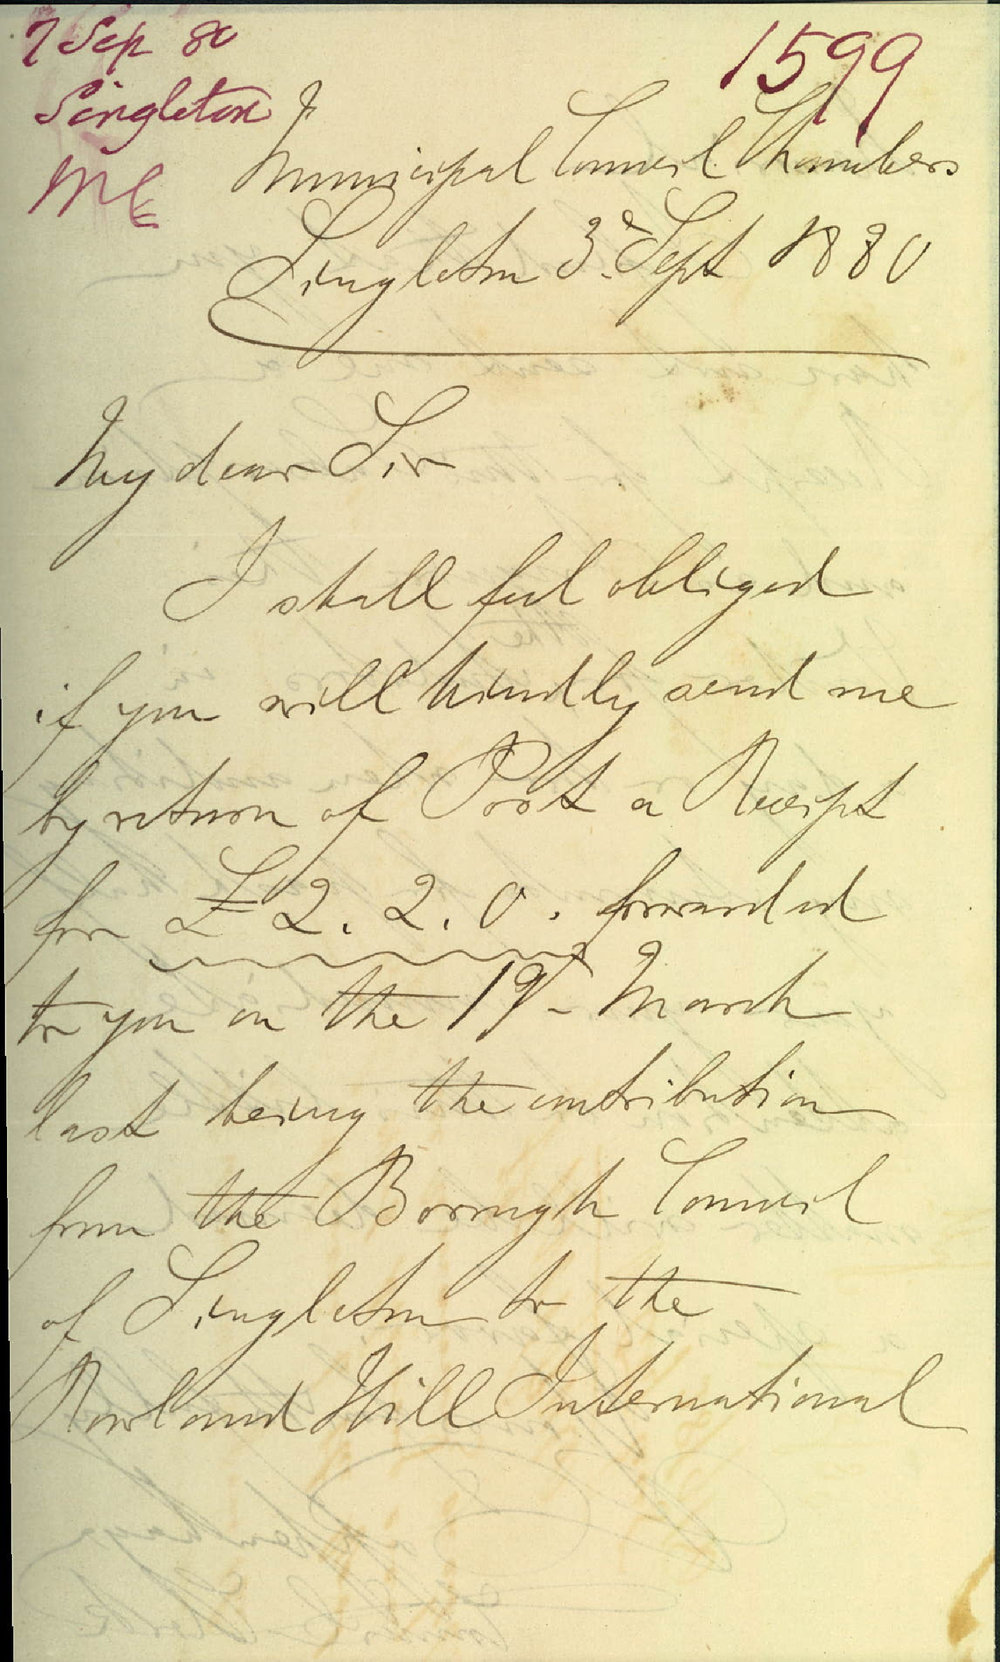 7 Sep 80
1599
Singleton
MC
Municipal Council Chambers
Singleton 3d. Sept 1880
My dear Sir
I shall feel obliged
if you will kindly send me
by return of Post a Receipt
for £2.2.0. forwarded
to you on the 19th March
last being the contribution
from the Borough Council
of Singleton to the
Rowland Hill International